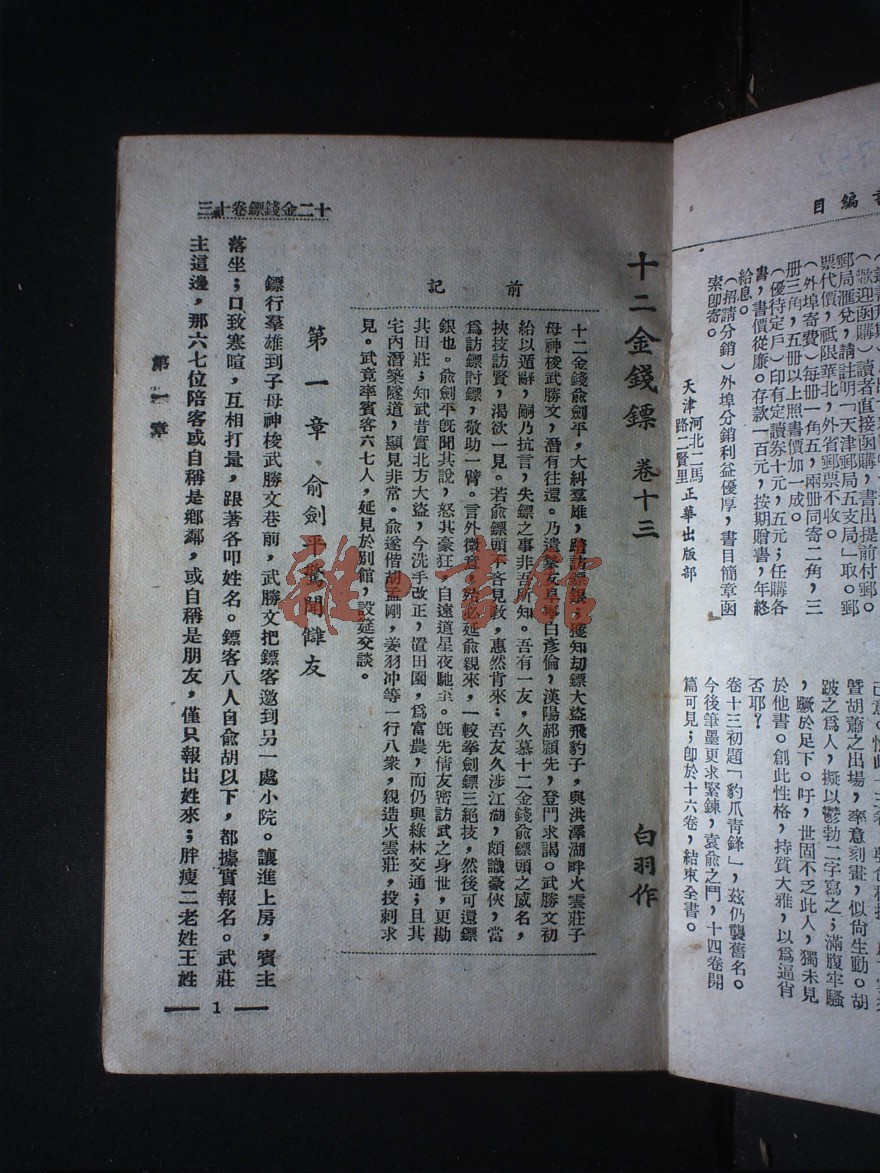 目編
郵局滙兌，請註明「天津郵局五支局」取。郵
票代價，祇限華北，外省郵票不收。
（外埠寄費）每冊一角五，兩冊同寄二角，三
冊三角，五冊以上照書價加一成。
（優待定戶）印有定讀券十元，五元；任購各
書，書價從廉。存款一百元，按期贈書，年終
給息。
（招請分銷）外埠分銷利益優厚，書目簡章函
索卽寄。
天津河北二馬路二賢里正華出版部
曁胡蕭之出場，率意刻畫，似尙生動。胡
跛之爲人，擬以鬱勃二字寫之；滿腹牢騷
，驕於足下。吁，世固不乏此人，獨未見
於他書。創此性格，持質大雅，以爲逼肖
否耶？
卷十三初題「豹爪靑鋒」，茲仍襲舊名。
今後筆墨更求緊鍊，袁俞之鬥，十四卷開
篇可見；卽於十六卷，結束全書。
十二金錢鏢 卷十三
白羽作
前記
十二金錢俞劍平，大糾羣雄，踏訪鏢銀；獲知刧鏢大盜飛豹子，與洪澤湖畔火雲莊子
母神梭武勝文，潛有往還。乃遣摯友阜寧白彥倫，漢陽郝顥先，登門求謁。武勝文初
給以遁辭，嗣乃抗言，失鏢之事非吾所知。吾有一友，久慕十二金錢俞鏢頭之威名，
挾技訪賢，渴欲一見。若俞鏢頭不吝見教，惠然肯來；吾友久涉江湖，頗識豪俠，當
爲訪鏢討鏢，敬助一臂。言外微意，殆必延俞親來，一較拳劍鏢三絕技，然後可還鏢
銀也。俞劍平旣聞其說，怒其豪狂，自遠道星夜馳至。旣先倩友密訪武之身世，更勘
其田莊；知武昔實北方大盜，今洗手改正，置田園，爲富農，而仍與綠林交通；且其
宅內潛築隧道，顯見非常。俞遂偕胡孟剛，姜羽冲等一行八衆，親造火雲莊，投刺求
見。武竟率賓客六七人，延見於別館，設筵交談。
第一章 俞劍平驚聞讎友
鏢行羣雄到子母神梭武勝文巷前，武勝文把鏢客邀到另一處小院。讓進上房，賓主
落坐；口致寒暄，互相打量，跟著各叩姓名。鏢客八人自俞胡以下，都據實報名。武莊
主這邊，那六七位陪客或自稱是鄉鄰，或自稱是朋友，僅只報出姓來；胖瘦二老姓王姓
十二金錢鏢卷十三
第一章
1